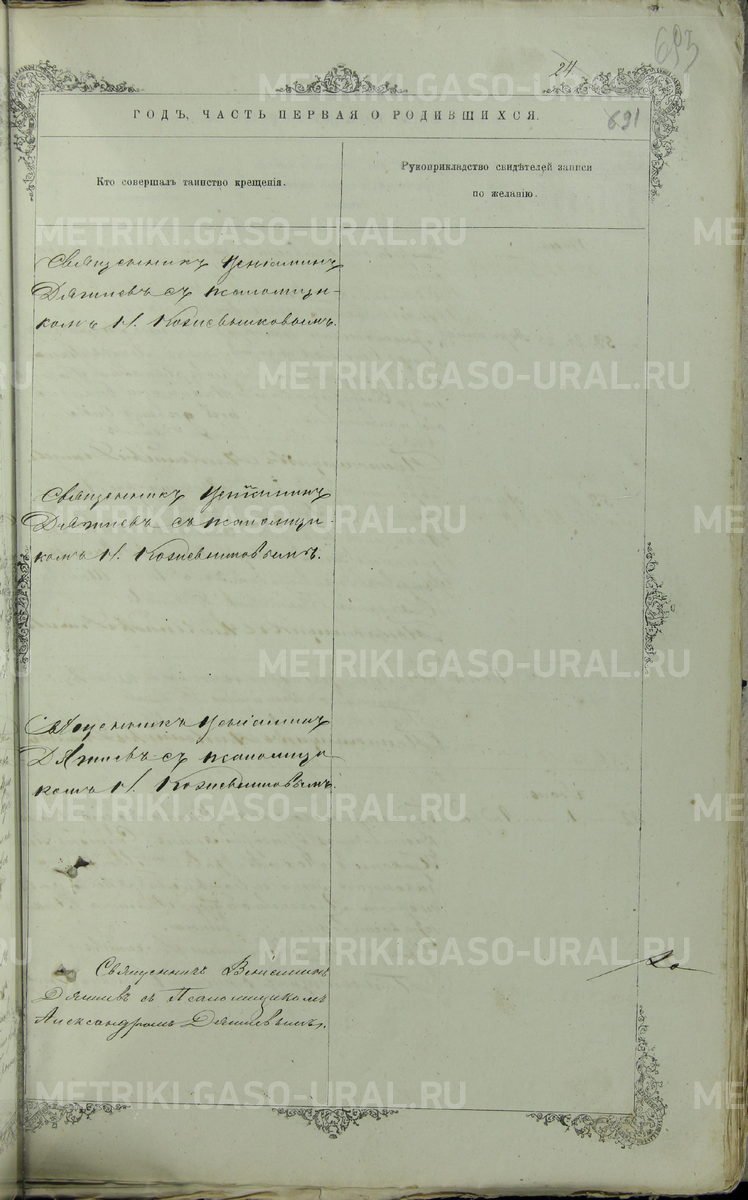 24
693
ГОДЪ, ЧАСТЬ ПЕРВАЯ О РОДИВШИХСЯ.
691
Кто совершалъ таинство крещенія.
Рукоприкладство свидѣтелей записи
по желанію.
Священникъ Веніаминъ
Дягилевъ съ псаломщи-
комъ Н. Кожевниковымъ.
Священникъ Веніаминъ
Дягилевъ съ псаломщи-
комъ Н. Кожевниковымъ.
Священникъ Веніаминъ
Дягилевъ съ псаломщи-
комъ Н. Кожевниковымъ.
Священникъ Веніаминъ
Дягилевъ съ Псаломщикомъ
Александромъ Дягилевымъ.
METRIKI.GASO-URAL.RU